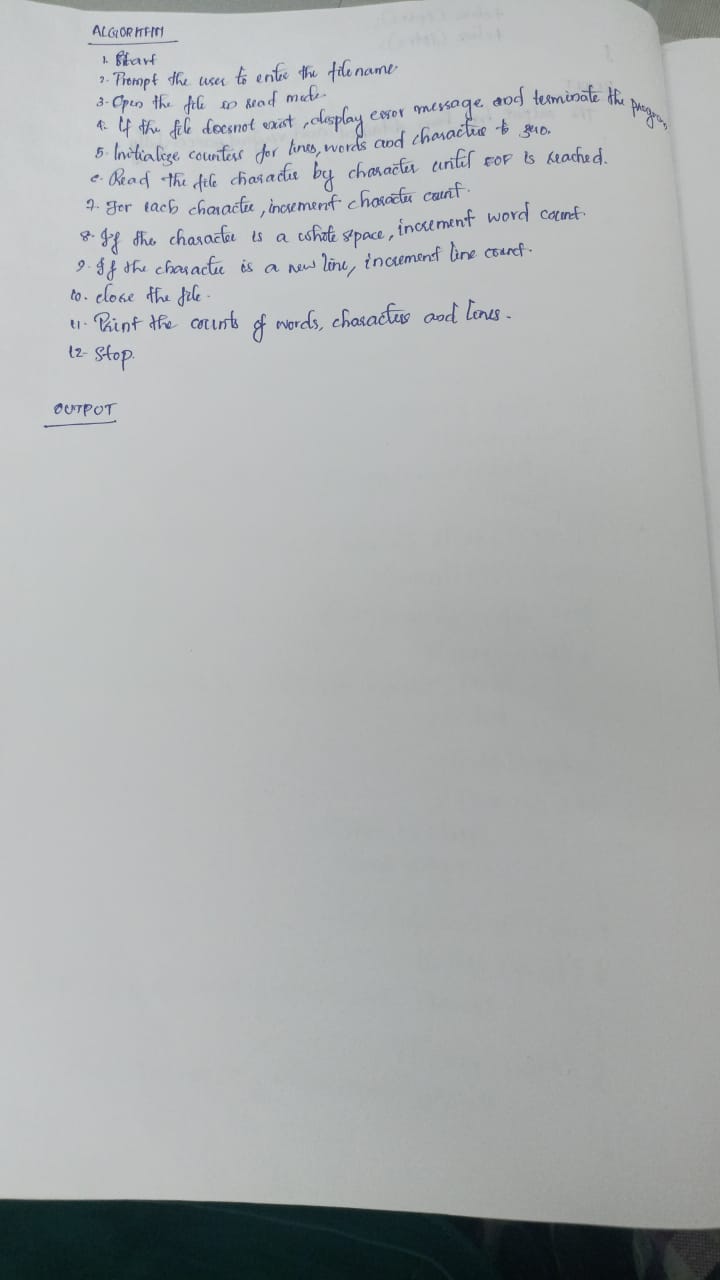 ALGORITHM
1. Start
2. Prompt the user to enter the filename
3. Open the file in read mode.
4. If the file doesnot exist, display error message and terminate the program
5. Initialize counters for lines, words and character to zero.
6. Read the file character by character until EOF is reached.
7. For each character, increment character count.
8. If the character is a white space, increment word count.
9. If the character is a new line, increment line count.
10. close the file.
11. Print the counts of words, characters and lines.
12. Stop.
OUTPUT